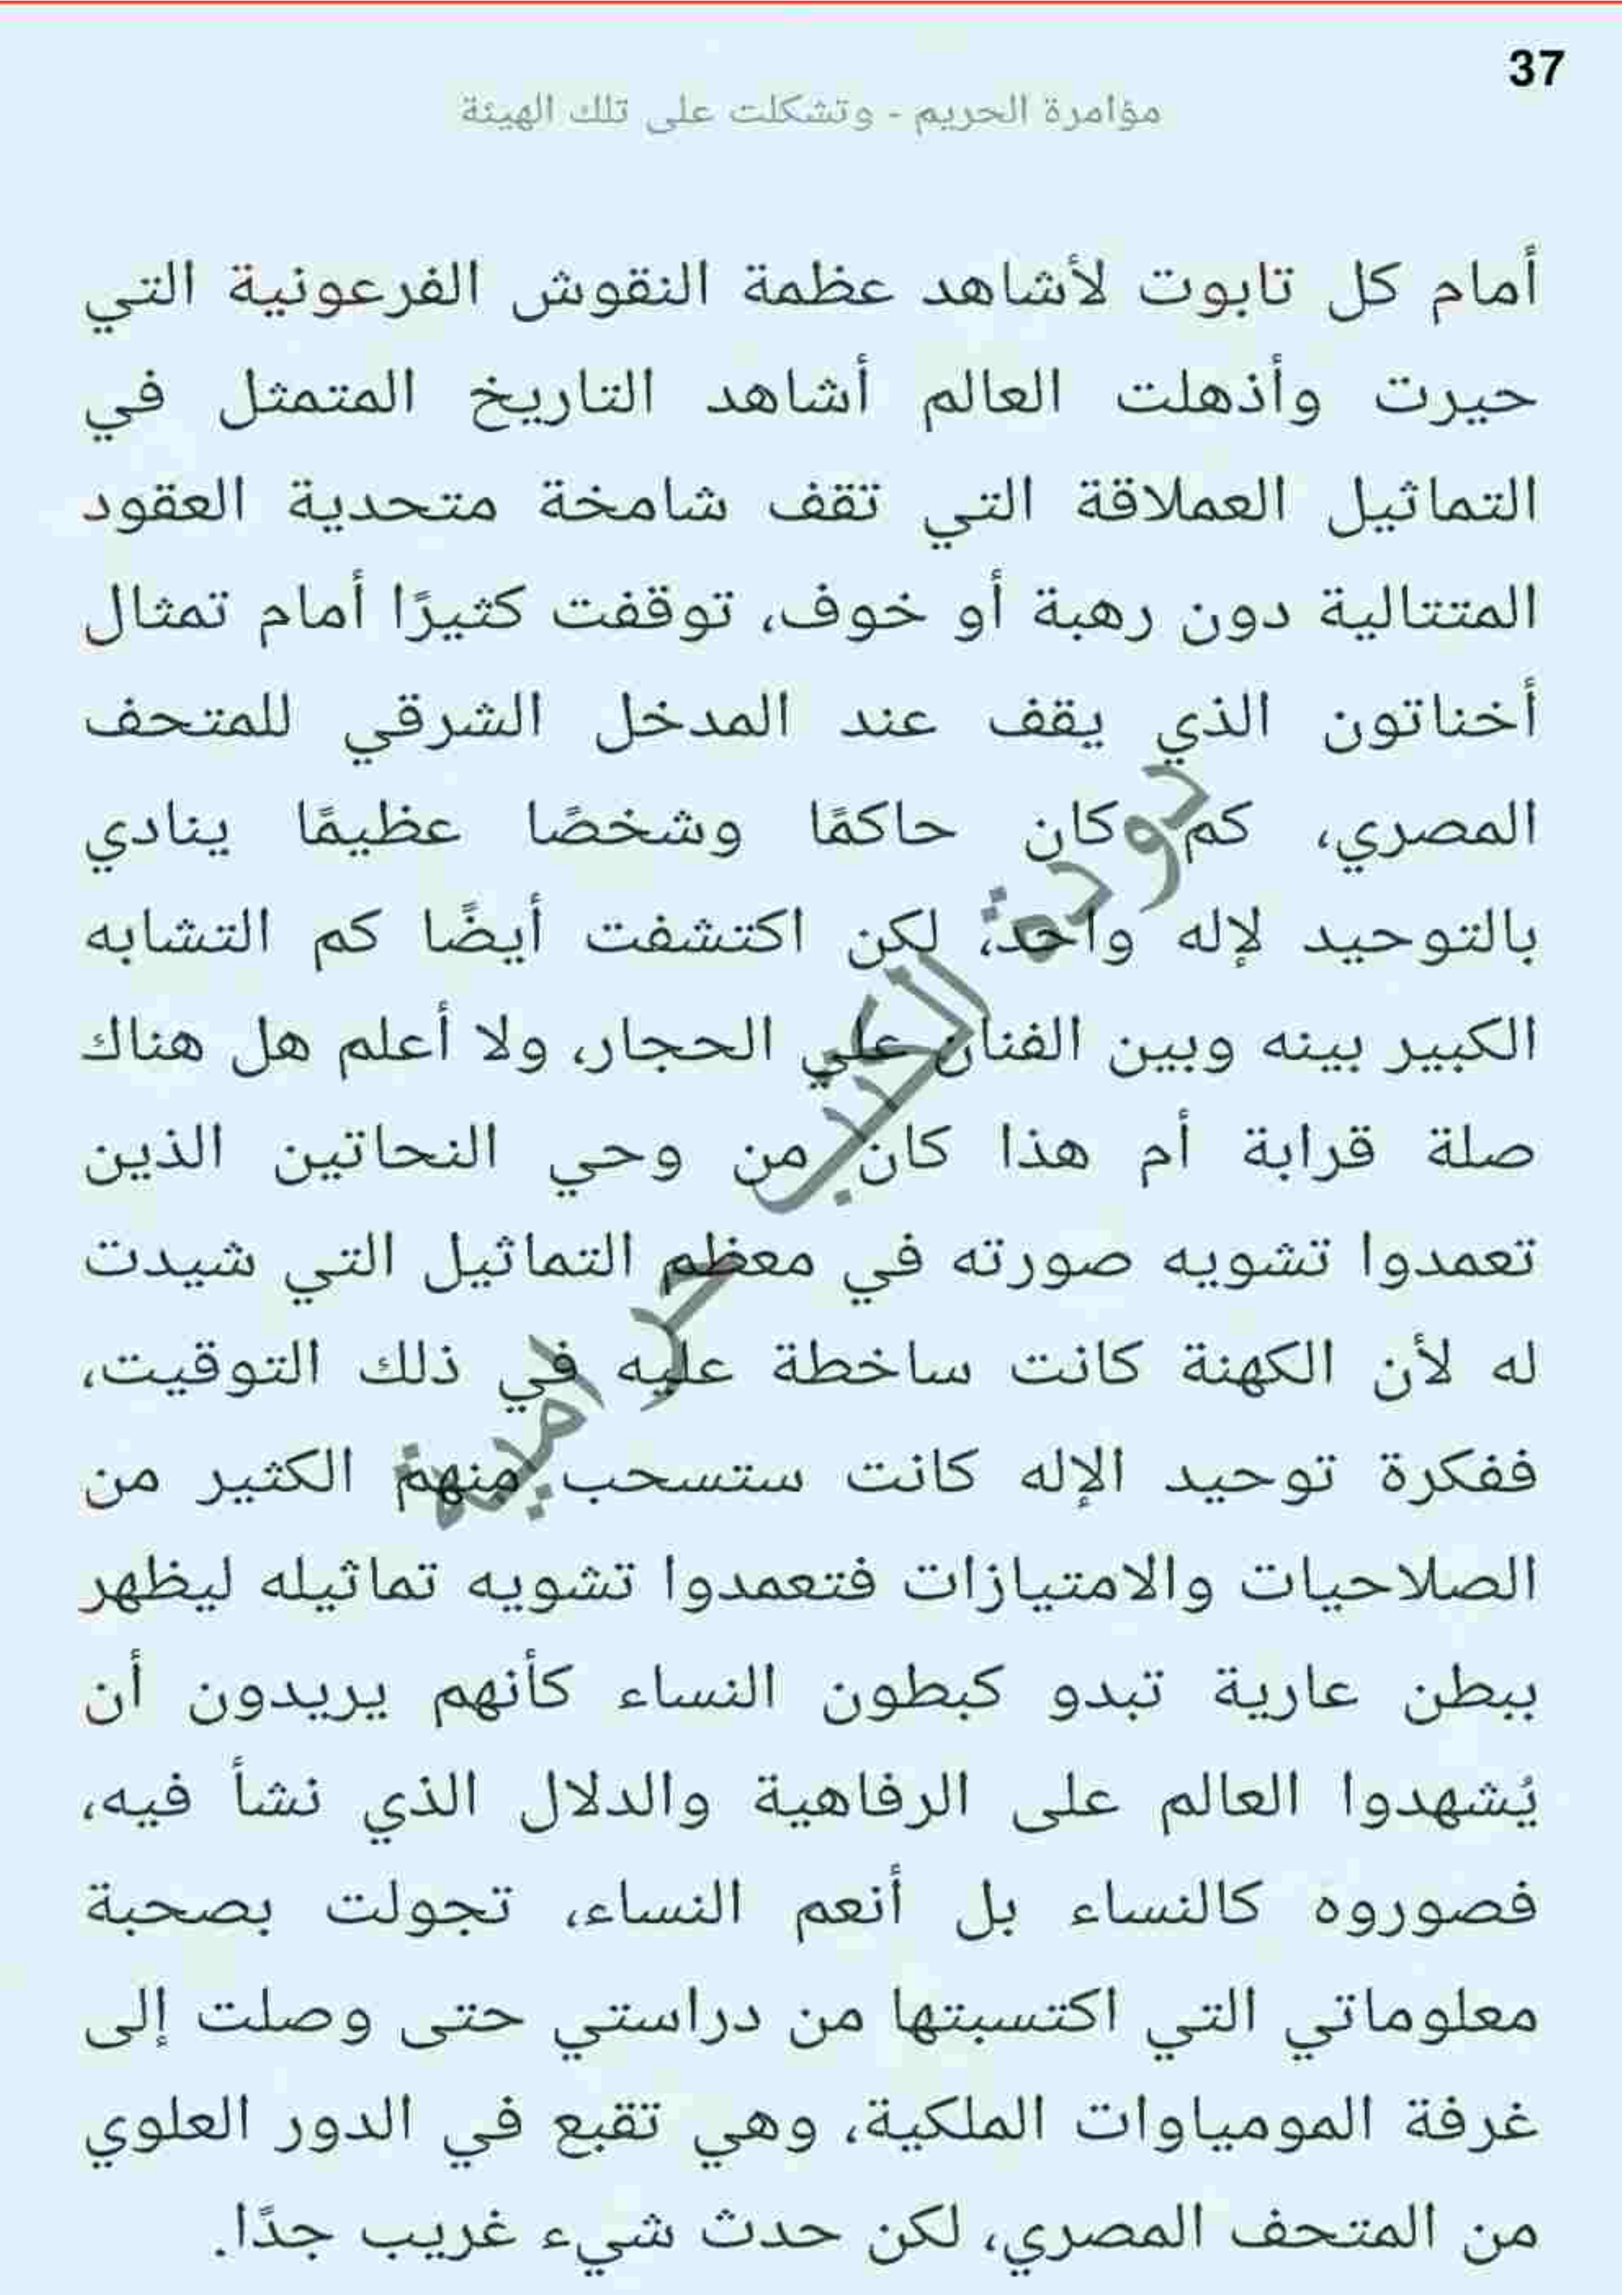 37
مؤامرة الحريم - وتشكلت على تلك الهيئة
أمام كل تابوت لأشاهد عظمة النقوش الفرعونية التي
حيرت وأذهلت العالم أشاهد التاريخ المتمثل في
التماثيل العملاقة التي تقف شامخة متحدية العقود
المتتالية دون رهبة أو خوف، توقفت كثيرًا أمام تمثال
أخناتون الذي يقف عند المدخل الشرقي للمتحف
المصري، كم كان حاكمًا وشخصًا عظيمًا ينادي
بالتوحيد لإله واحد، لكن اكتشفت أيضًا كم التشابه
الكبير بينه وبين الفنان علي الحجار، ولا أعلم هل هناك
صلة قرابة أم هذا كان من وحي النحاتين الذين
تعمدوا تشويه صورته في معظم التماثيل التي شيدت
له لأن الكهنة كانت ساخطة عليه في ذلك التوقيت،
ففكرة توحيد الإله كانت ستسحب منهم الكثير من
الصلاحيات والامتيازات فتعمدوا تشويه تماثيله ليظهر
ببطن عارية تبدو كبطون النساء كأنهم يريدون أن
يُشهدوا العالم على الرفاهية والدلال الذي نشأ فيه،
فصوروه كالنساء بل أنعم النساء، تجولت بصحبة
معلوماتي التي اكتسبتها من دراستي حتى وصلت إلى
غرفة المومياوات الملكية، وهي تقبع في الدور العلوي
من المتحف المصري، لكن حدث شيء غريب جدًا.
دودة الكتب